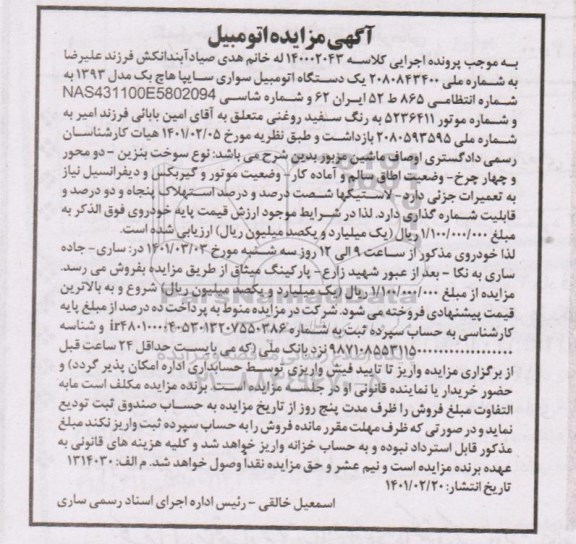 آگهی مزایده اتومبیل
به موجب پرونده اجرایی کلاسه ۱۴۰۰۰۲۰۴۳ له خانم هدی صیاد آبندانکش فرزند علیرضا
به شماره ملی ۲۰۸۰۸۴۳۴۰۰ یک دستگاه اتومبیل سواری سایپا هاچ بک مدل ۱۳۹۳ به
شماره انتظامی ۸۶۵ ط ۵۲ ایران ۶۲ و شماره شاسی NAS431100E5802094
و شماره موتور ۵۲۳۶۴۱۱ به رنگ سفید روغنی متعلق به آقای امین بابائی فرزند امیر به
شماره ملی ۲۰۸۰۵۹۳۵۹۵ بازداشت و طبق نظریه مورخ ۱۴۰۱/۰۲/۰۵ هیات کارشناسان
رسمی دادگستری اوصاف ماشین مزبور بدین شرح می باشد: نوع سوخت بنزین - دو محور
و چهار چرخ- وضعیت اطاق سالم و آماده کار- وضعیت موتور و گیربکس و دیفرانسیل نیاز
به تعمیرات جزئی دارد. لاستیکها شصت درصد و درصد استهلاک پنجاه و دو درصد و
قابلیت شماره گذاری دارد. لذا در شرایط موجود ارزش قیمت پایه خودروی فوق الذکر به
مبلغ ۱/۱۰۰/۰۰۰/۰۰۰ ریال (یک میلیارد و یکصد میلیون ریال) ارزیابی شده است.
لذا خودروی مذکور از ساعت ۹ الی ۱۲ روز سه شنبه مورخ ۱۴۰۱/۰۳/۰۳ در: ساری- جاده
ساری به نکا - بعد از عبور شهید زارع- پارکینگ میثاق از طریق مزایده بفروش می رسد.
مزایده از مبلغ ۱/۱۰۰/۰۰۰/۰۰۰ ریال (یک میلیارد و یکصد میلیون ریال) شروع و به بالاترین
قیمت پیشنهادی فروخته می شود. شرکت در مزایده منوط به پرداخت ده درصد از مبلغ پایه
کارشناسی به حساب سپرده ثبت به شماره ir۴۸۱۰۰۰۰۴۰۵۳۰۱۳۲۰۷۵۵۰۳۸۶ و شناسه
۹۸۷۱۰۸۵۵۳۱۱۵۰۰۰۰۰۰۰۰۰۰۰۰۰۰۰۰۰ نزد بانک ملی (که می بایست حداقل ۲۴ ساعت قبل
از برگزاری مزایده واریز تا تایید فیش واریزی توسط حسابداری اداره امکان پذیر گردد) و
حضور خریدار یا نماینده قانونی او در جلسه مزایده است. برنده مزایده مکلف است مابه
التفاوت مبلغ فروش را ظرف مدت پنج روز از تاریخ مزایده به حساب صندوق ثبت تودیع
نماید و در صورتی که ظرف مهلت مقرر مانده فروش را به حساب سپرده ثبت واریز نکند مبلغ
مذکور قابل استرداد نبوده و به حساب خزانه واریز خواهد شد و کلیه هزینه های قانونی به
عهده برنده مزایده است و نیم عشر و حق مزایده نقداً وصول خواهد شد. م الف: ۱۳۱۴۰۳۰
تاریخ انتشار: ۱۴۰۱/۰۲/۲۰
اسمعیل خالقی - رئیس اداره اجرای اسناد رسمی ساری